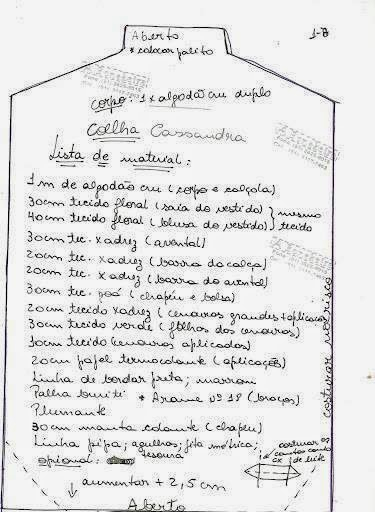 Aberto
* colocar palito
1-8
corpo: 1 x algodão cru duplo
Coelha Cassandra
Lista de material:
1 m de algodão cru (corpo e calçola)
30cm tecido floral (saia do vestido) } mesmo
40cm tecido floral (blusa do vestido) } tecido
30cm tec. xadrez (avental)
20cm tec. xadrez (barra da calça)
20cm tec. xadrez (barra do avental)
30cm tec. poá (chapéu e bolsa)
20cm tecido xadrez (cenouras grandes + aplicação)
30cm tecido verde (folhas das cenouras)
10cm tecido (cenouras aplicadas)
20cm papel termocolante (aplicações)
Linha de bordar preta; marrom
Palha buriti * Arame nº 18 (braços)
Plumante
30cm manta colante (chapéu)
Linha pipa; agulhas; fita métrica;
tesoura
opional:
costurar os
cantos como
cx de leite
costurar no risco
↓ aumentar + 2,5 cm
Aberto